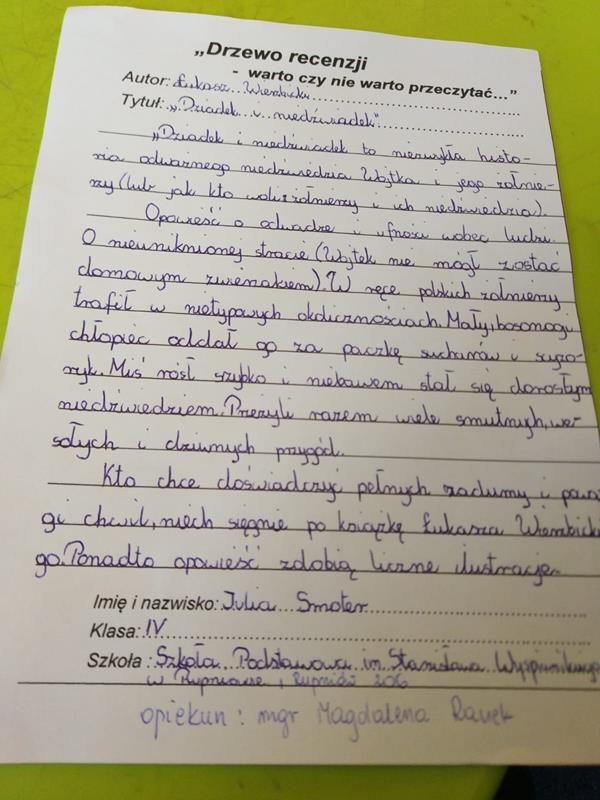 „Drzewo recenzji
- warto czy nie warto przeczytać..."
Autor: Łukasz Wierzbicki
Tytuł: „Dziadek i niedźwiadek"
„Dziadek i niedźwiadek to niezwykła histo-
ria odważnego niedźwiedzia Wojtka i jego żołnie-
rzy (lub jak kto woli: żołnierzy i ich niedźwiedzia).
Opowieść o odwadze i ufności wobec ludzi.
O nieuniknionej stracie (Wojtek nie mógł zostać
domowym zwierzakiem). W ręce polskich żołnierzy
trafił w nietypowych okolicznościach. Mały, bosonogi
chłopiec oddał go za paczkę sucharów i scyzo-
ryk. Miś rósł szybko i niebawem stał się dorosłym
niedźwiedziem. Przeżyli razem wiele smutnych, we-
sołych i dziwnych przygód.
Kto chce doświadczyć pełnych zadumy i powa
gi chwil, niech sięgnie po książkę Łukasza Wierzbicki
go. Ponadto opowieść zdobią liczne ilustracje.
Imię i nazwisko: Julia Smoter
Klasa: IV
Szkoła: Szkoła Podstawowa im. Stanisława Wyspiańskiego
w Rupniowie, Rupniów 206
opiekun: mgr Magdalena